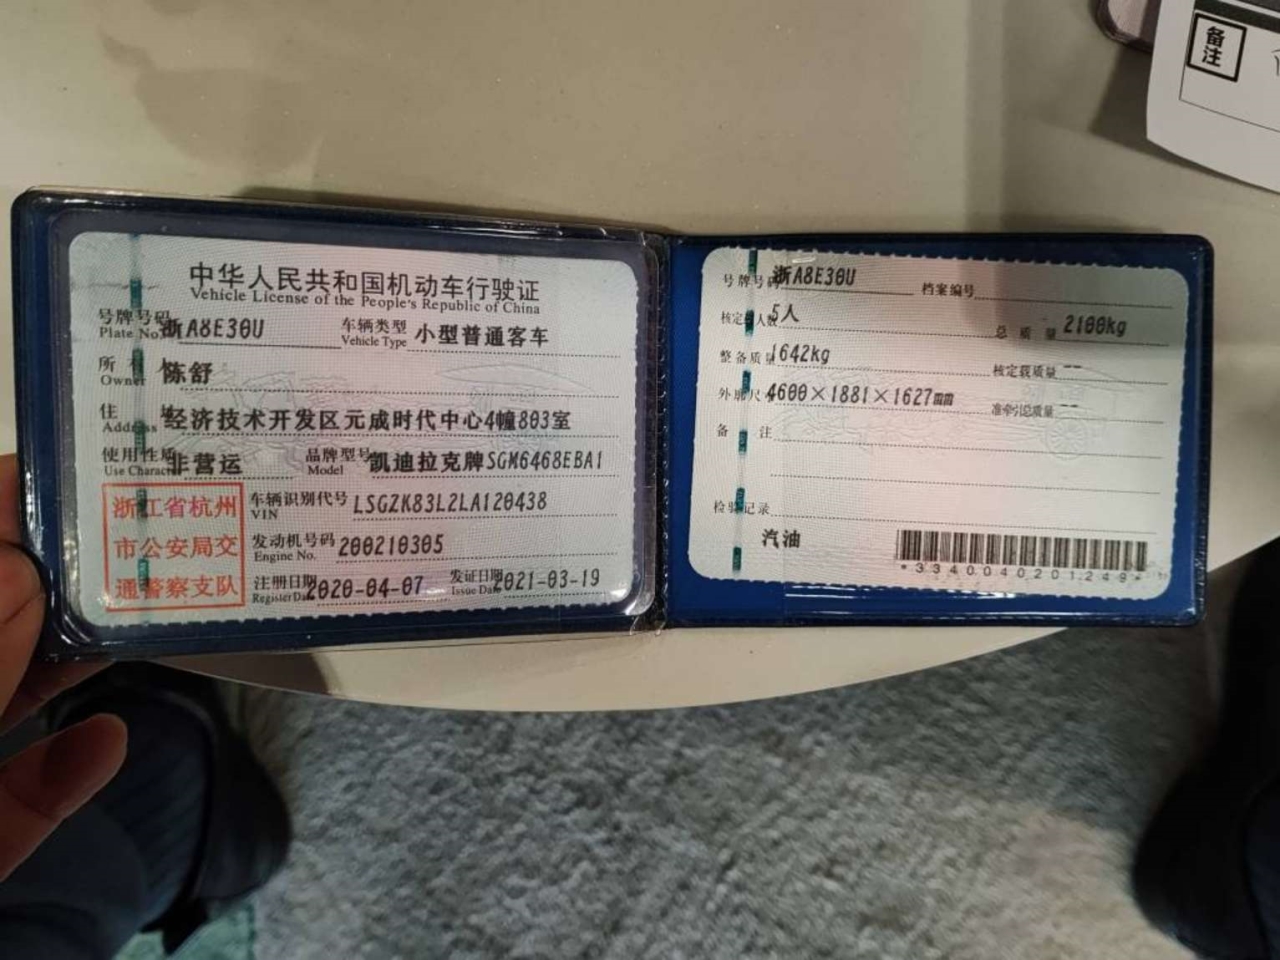 备注
中华人民共和国机动车行驶证
Vehicle License of the People's Republic of China
号牌号码 浙A8E30U 车辆类型 小型普通客车
Plate No. Vehicle Type
所 人 陈舒
Owner
住 址 经济技术开发区元成时代中心4幢803室
Address
使用性质 非营运 品牌型号 凯迪拉克牌SGM6468EBA1
Use Character Model
浙江省杭州
市公安局交
通警察支队
车辆识别代号 LSGZK83L2LA120438
VIN
发动机号码 200210305
Engine No.
注册日期 2020-04-07 发证日期 2021-03-19
Register Date Issue Date
号牌号码 浙A8E30U 档案编号
核定 人数 5人 总质量 2100kg
整备质量 1642kg 核定载质量 --
外廓尺 4600×1881×1627mm 准牵引总质量 --
备 注
检验记录
汽油
*3340040201249*